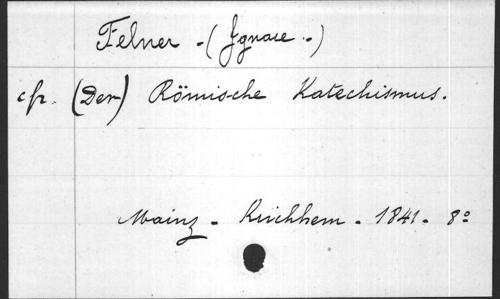 Felner - (Ignace -)
cfr. (Der) Römische Katechismus.
Mainz - Kirchhem - 1841 - 8º